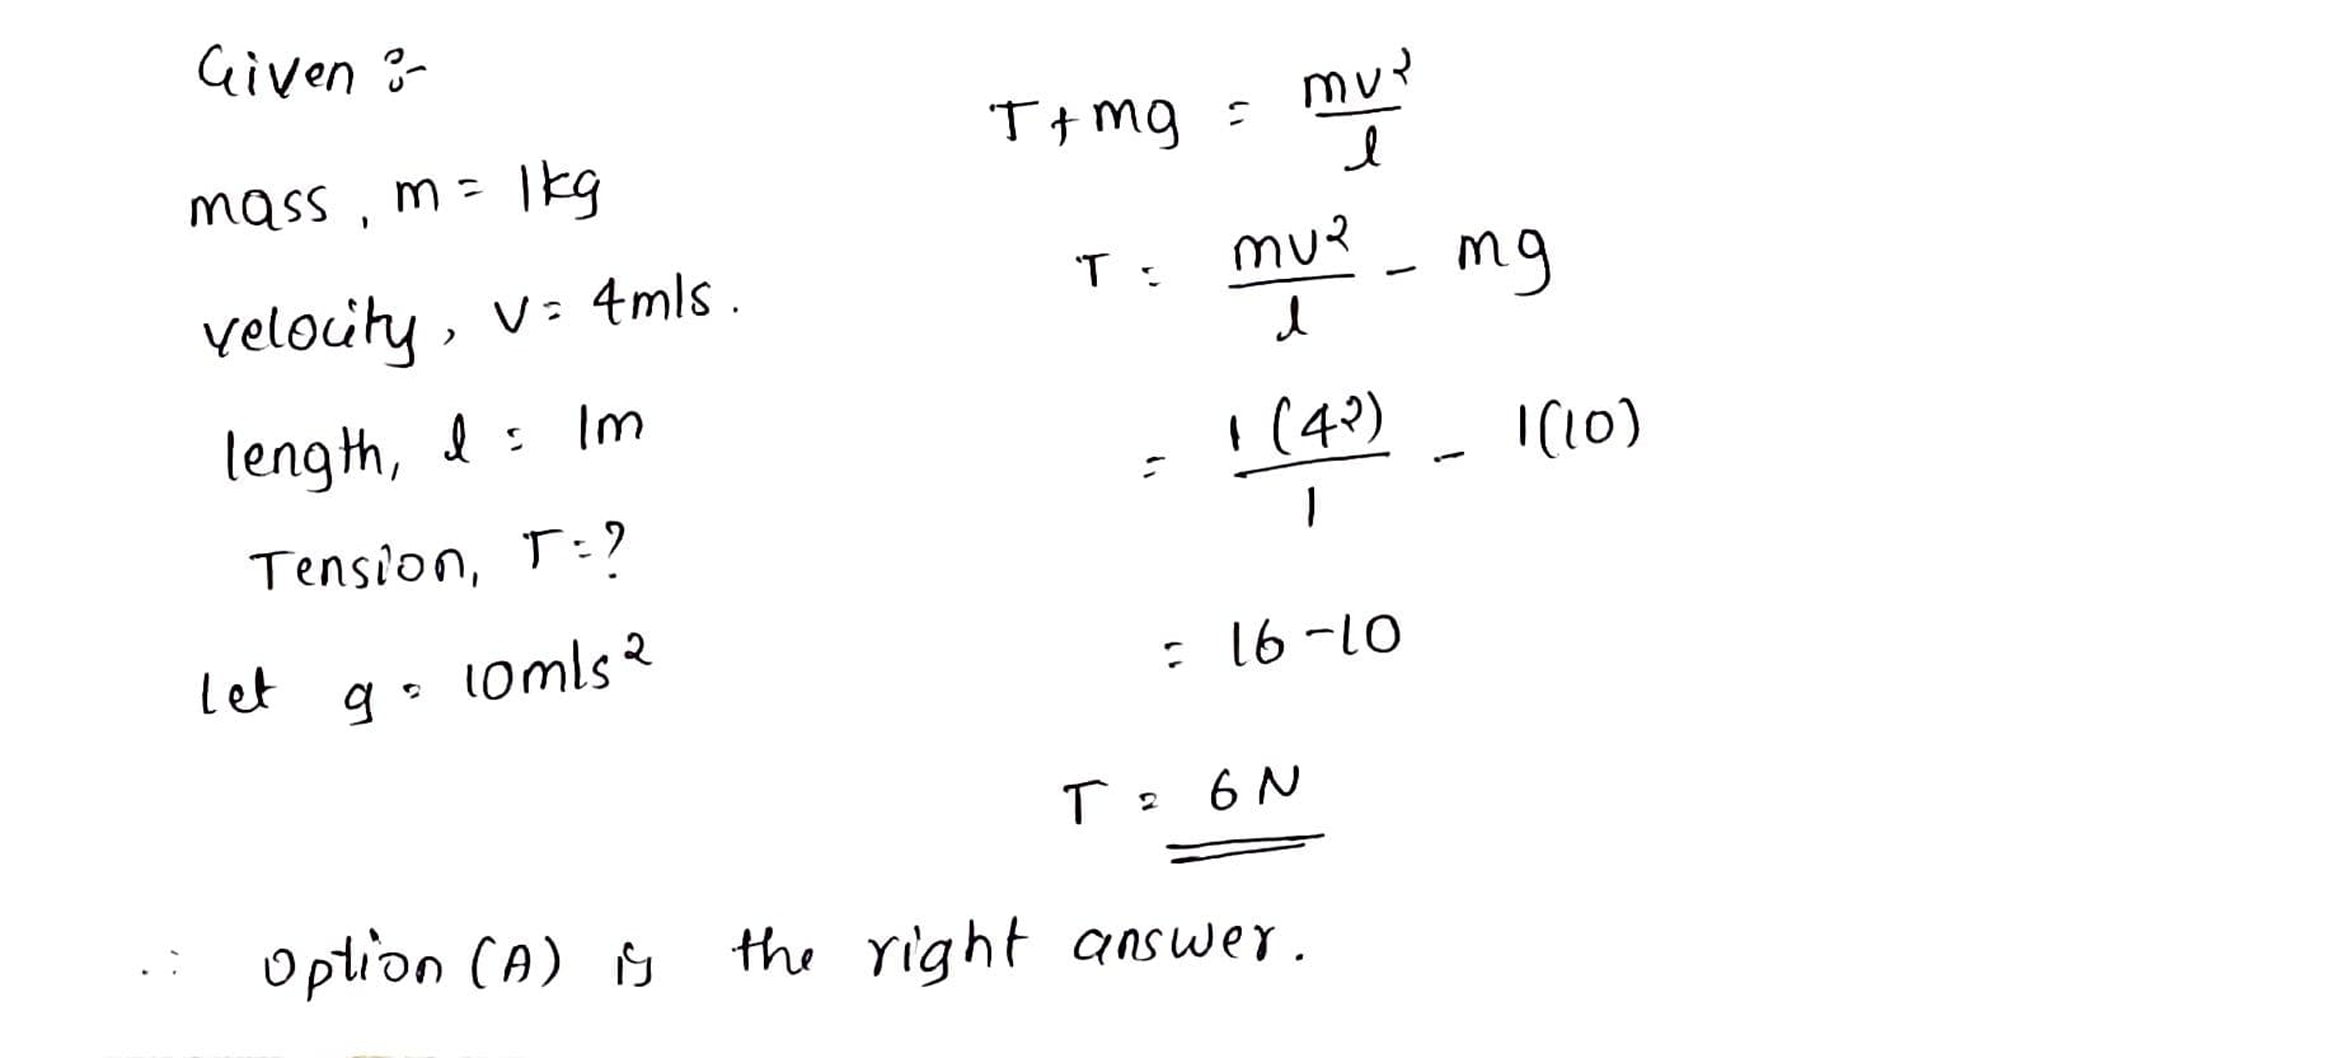 Given :-
mass, m = 1kg
velocity, v = 4m/s.
length, l = 1m
Tension, T = ?
let g = 10m/s²
T + mg = mv²/l
T = mv²/l - mg
= 1(4²)/1 - 1(10)
= 16 - 10
T = 6N
∴ Option (A) is the right answer.